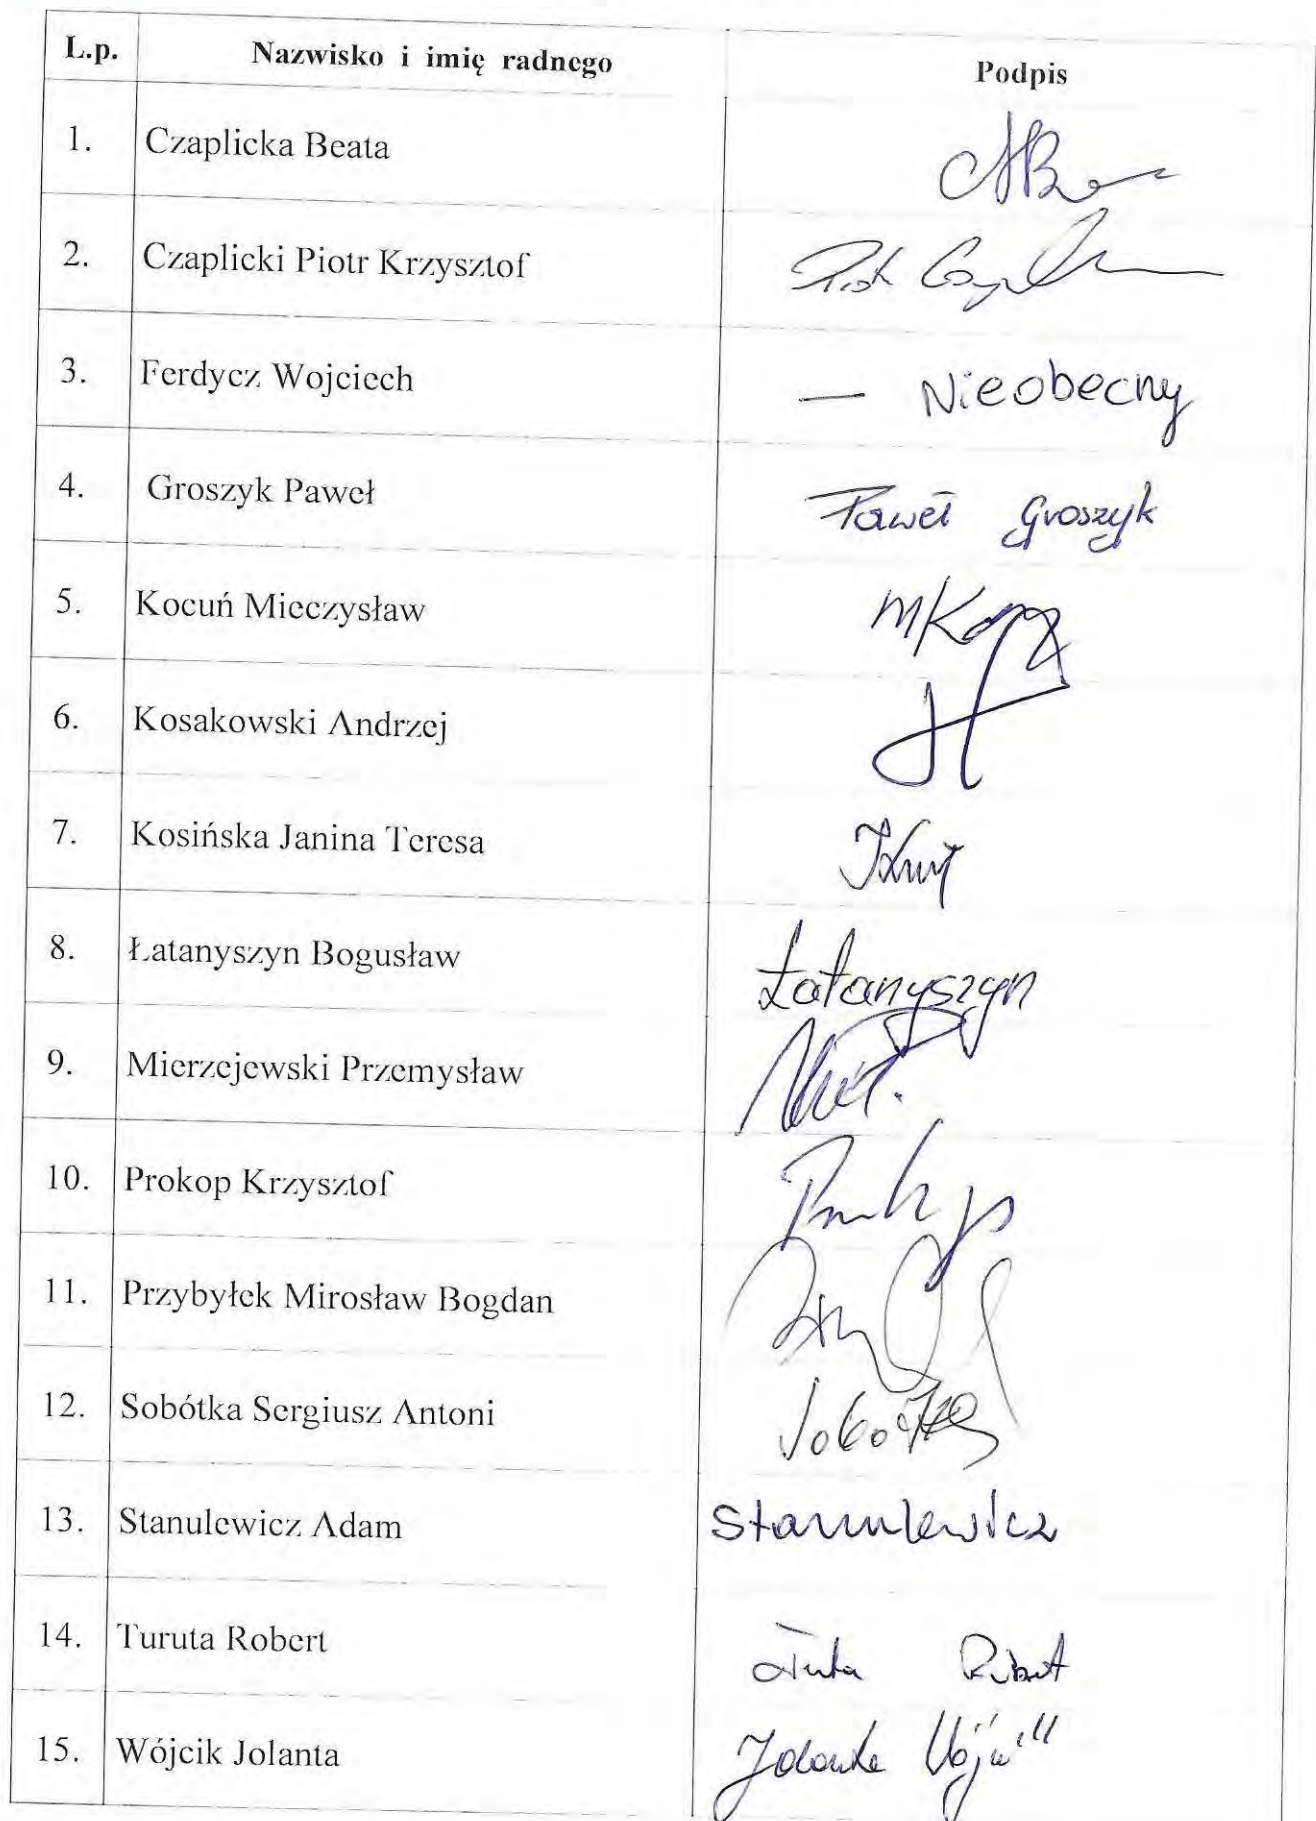 L.p. Nazwisko i imię radnego Podpis
1. Czaplicka Beata
2. Czaplicki Piotr Krzysztof
3. Ferdycz Wojciech — Nieobecny
4. Groszyk Paweł Paweł Groszyk
5. Kocuń Mieczysław
6. Kosakowski Andrzej
7. Kosińska Janina Teresa
8. Łatanyszyn Bogusław Łatanyszyn
9. Mierzejewski Przemysław
10. Prokop Krzysztof
11. Przybyłek Mirosław Bogdan
12. Sobótka Sergiusz Antoni Sobótka
13. Stanulewicz Adam Stanulewicz
14. Turuta Robert
15. Wójcik Jolanta Jolanta Wójcik